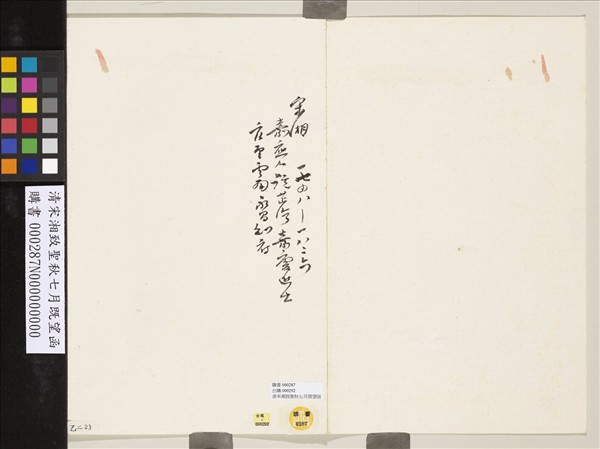 宋湘 一七四八—一八二六
嘉應人 號芷灣 嘉慶進士
官至雲南永昌知府
清宋湘致聖秋七月既望函
購書 000287N000000000
購書 000287
清宋湘致聖秋七月既望函
乙二23